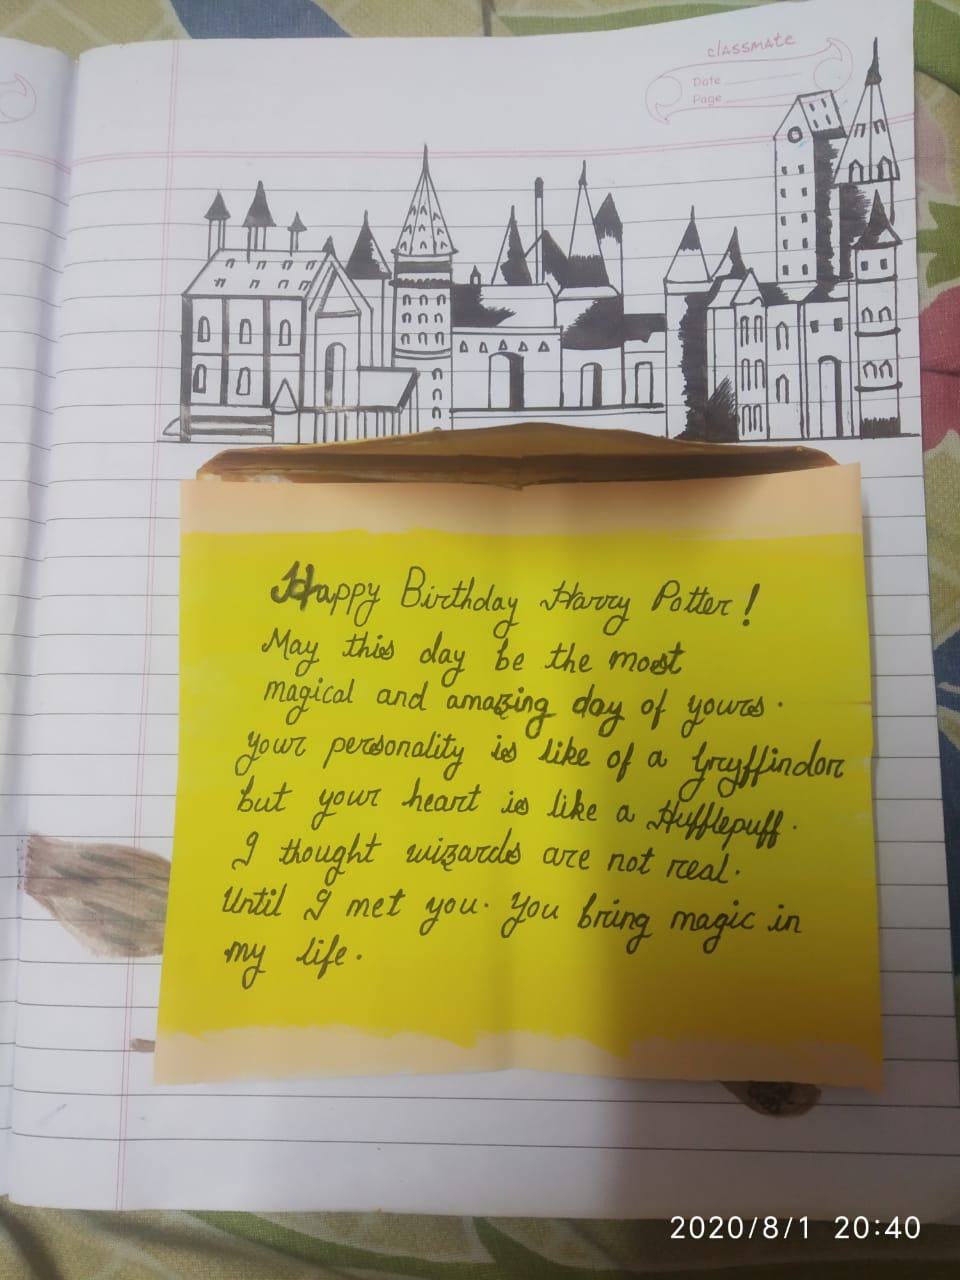 classmate
Date
Page
Happy Birthday Harry Potter!
May this day be the most
magical and amazing day of yours.
Your personality is like of a Gryffindor
but your heart is like a Hufflepuff.
I thought wizards are not real.
Until I met you. You bring magic in
my life.
2020/8/1 20:40